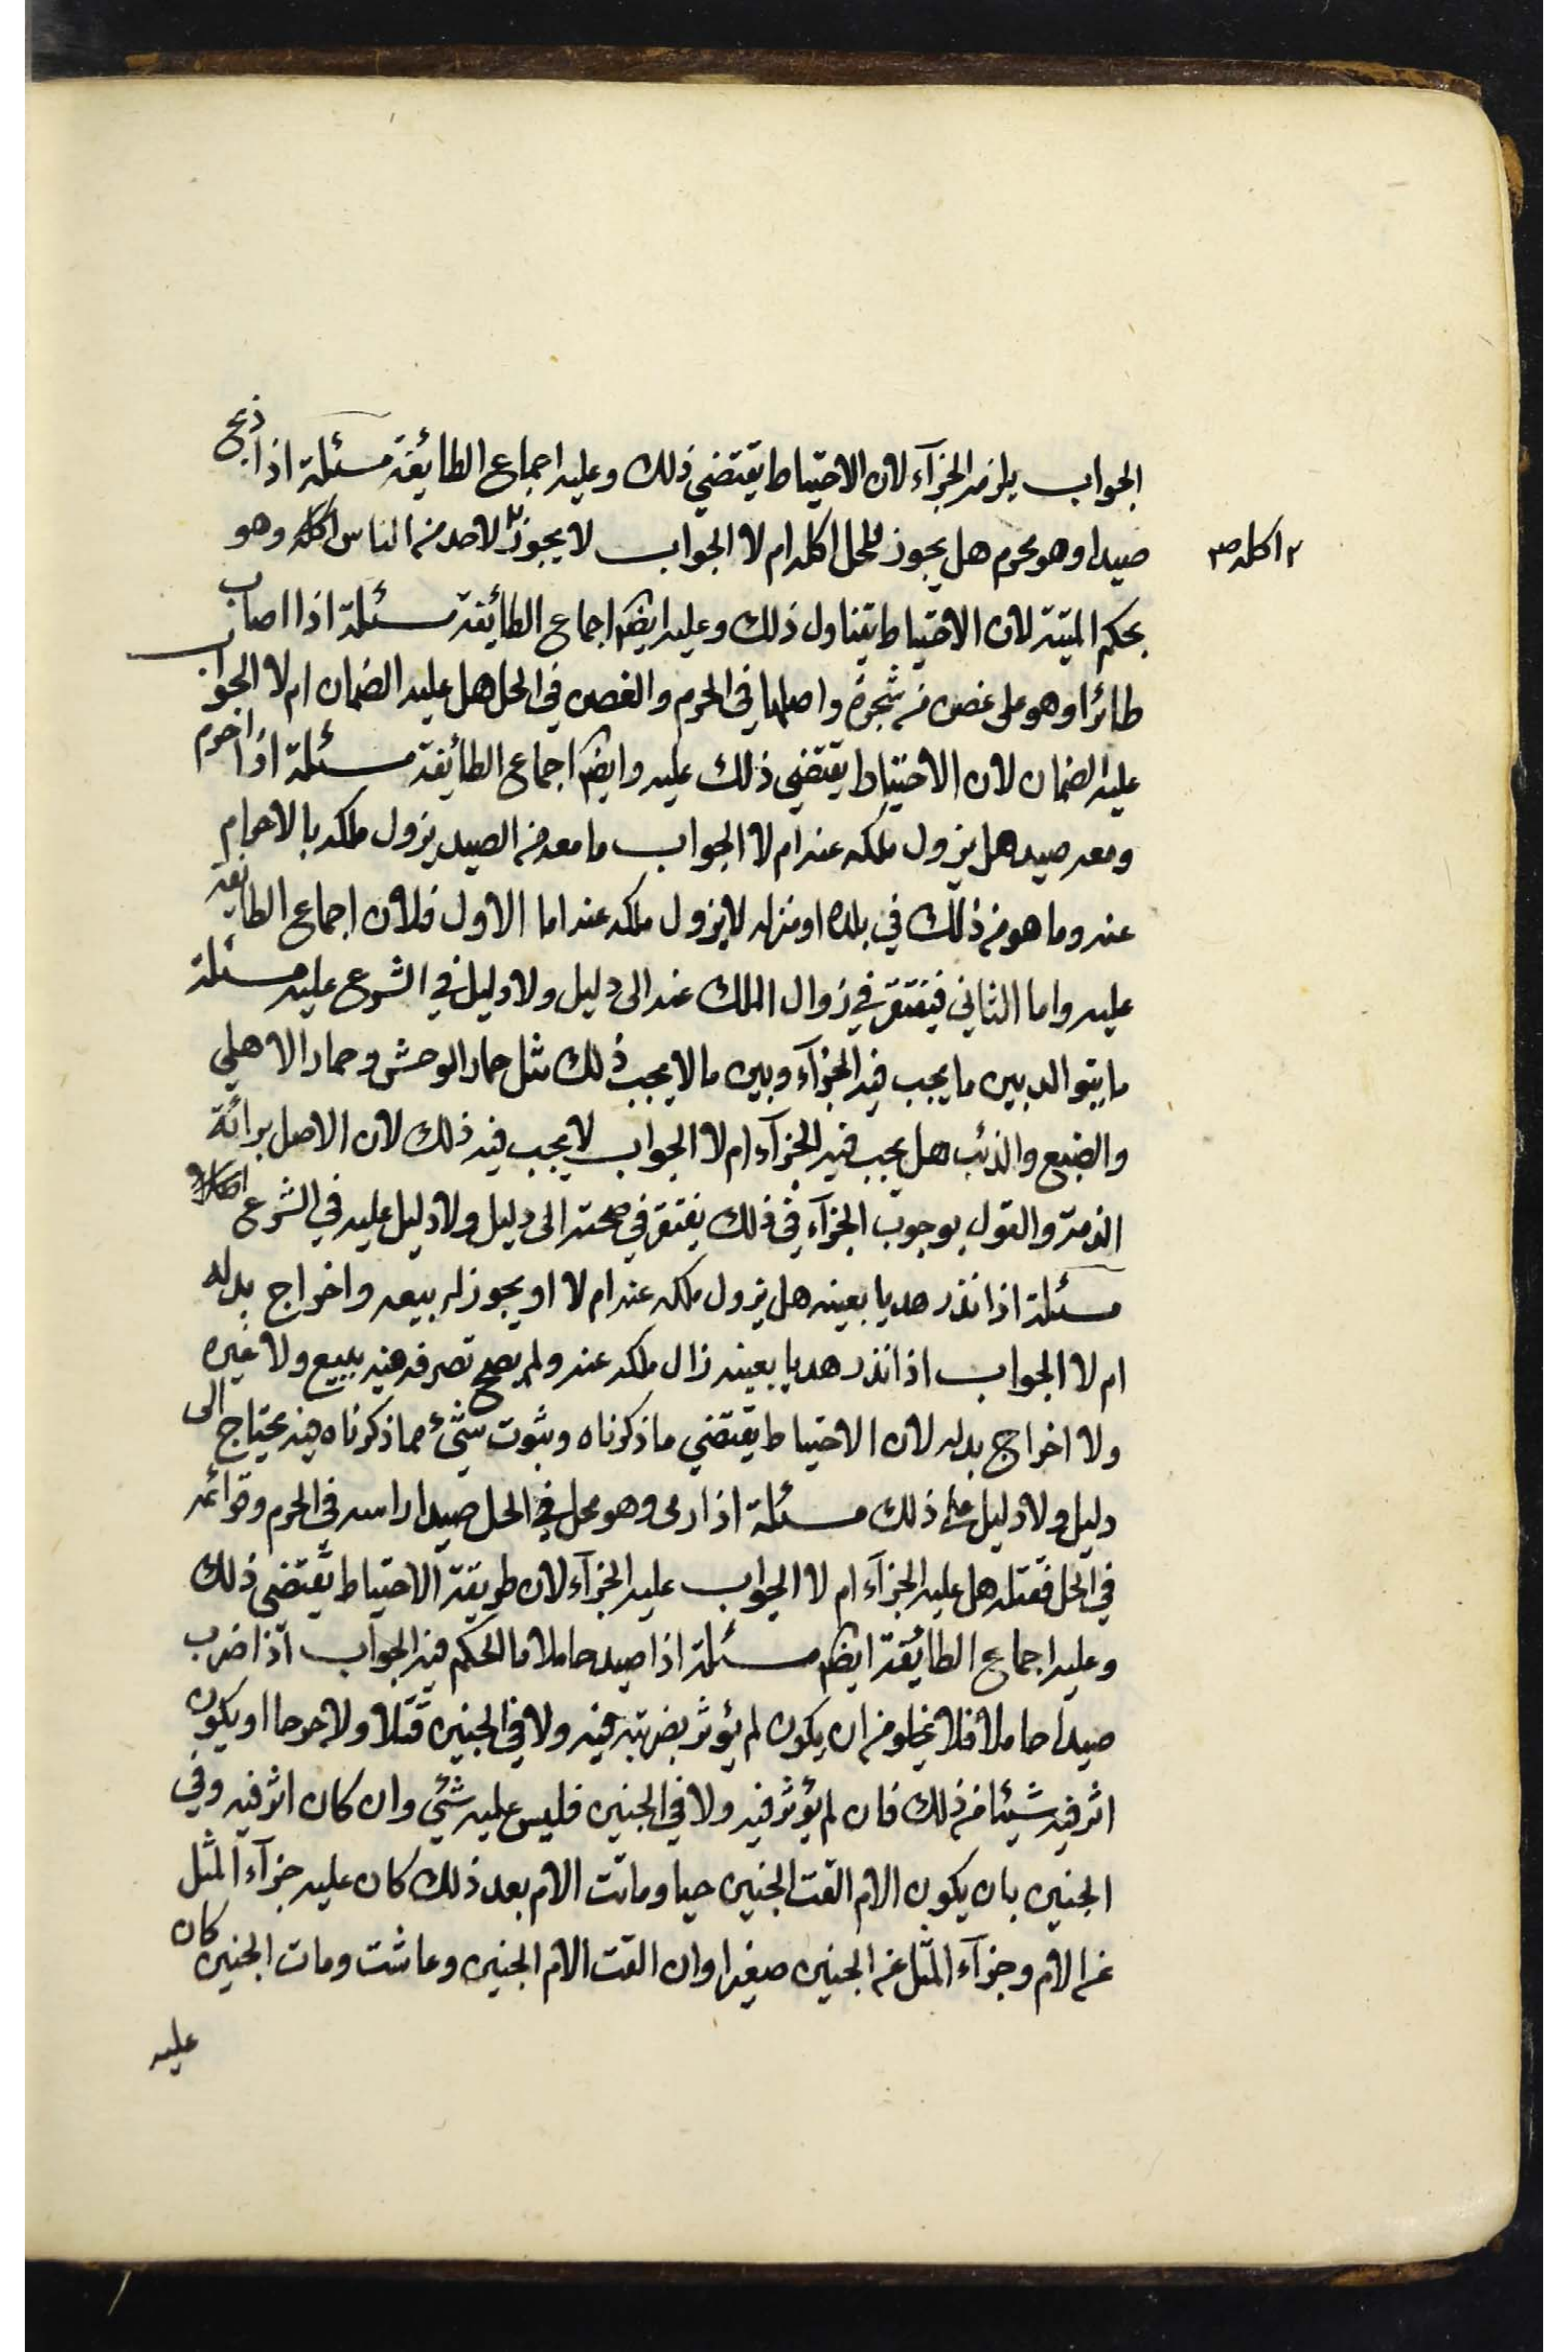 الجواب يلزمه الجزآء لان الاحتياط يقتضي ذلك وعليه اجماع الطائفة مسئلة اذا ذبح
صيدا وهو محرم هل يجوز للمحل اكله ام لا الجواب لا يجوز لاحد من الناس اكله وهو
اكله صح
بحكم الميتة لان الاحتياط يتناول ذلك وعليه ايضا اجماع الطائفة مسئلة اذا اصاب
طائرا وهو على غصن من شجرة واصلها في الحرم والغصن في الحل هل عليه الضمان ام لا الجواب
عليه الضمان لان الاحتياط يقتضي ذلك عليه وايضا اجماع الطائفة مسئلة اذا احرم
ومعه صيد هل يزول ملكه عنه ام لا الجواب ما معه من الصيد يزول ملكه بالاحرام
عنه وما هو من ذلك في بلده او منزله لا يزول ملكه عنه اما الاول فلان اجماع الطائفة
عليه واما الثاني فيفتقر في زوال الملك عنه الى دليل ولا دليل في الشرع عليه مسئلة
ما يتوالد بين ما يجب فيه الجزآء وبين ما لا يجب ذلك مثل حمار الوحش وحمار الاهلي
والضبع والذئب هل يجب فيه الجزآء ام لا الجواب لا يجب فيه ذلك لان الاصل برائة
الذمة والقول بوجوب الجزآء في ذلك يفتقر في صحته الى دليل ولا دليل عليه في الشرع
مسئلة اذا نذر هديا بعينه هل يزول ملكه عنه ام لا او يجوز له بيعه واخراج بدله
ام لا الجواب اذا نذر هديا بعينه زال ملكه عنه ولم يصح تصرفه فيه ببيع ولا غيره
ولا اخراج بدله لان الاحتياط يقتضي ما ذكرناه وبثوت شئ مما ذكرناه فيه يحتاج الى
دليل ولا دليل على ذلك مسئلة اذا رمى وهو محل في الحل صيدا راسه في الحرم وقوائمه
في الحل فقتله هل عليه الجزآء ام لا الجواب عليه الجزآء لان طريقة الاحتياط يقتضي ذلك
وعليه اجماع الطائفة ايضا مسئلة اذا صيد حاملا ما الحكم فيه الجواب اذا ضرب
صيدا حاملا فلا يخلو من ان يكون لم يؤثر بضربته فيه ولا في الجنين قتلا ولا جرحا او يكون
اثر فيه شيئا من ذلك فان لم يؤثر فيه ولا في الجنين فليس عليه شئ وان كان اثر فيه وفي
الجنين بان يكون الام القت الجنين حيا وماتت الام بعد ذلك كان عليه جزآء المثل
عن الام وجزآء المثل عن الجنين صغيرا وان القت الام الجنين وعاشت ومات الجنين كان
عليه